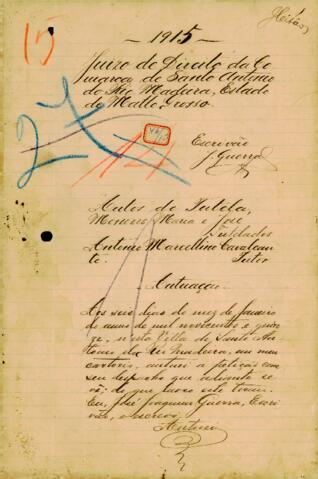 15
— 1915 —
Juizo de Direito da Co
marca de Santo Antonio
do Rio Madeira, Estado
de Matto Grosso.
27
14
Escrivão
J. Guerra
Autos de Tutela,
Menores Maria e José
Tutelados
Antonio Marcellino Cavalcan
te. Tutor
Autuação.
Aos seis dias do mez de Janeiro
do anno de mil novecentos e quin
ze, nesta Villa de Santo An
tonio do Rio Madeira, em meu
cartorio, autuei a petição com
seu despacho que adiante se
vê; do que lavro este termo.
Eu, José Joaquim Guerra, Escri
vão, o escrevi.